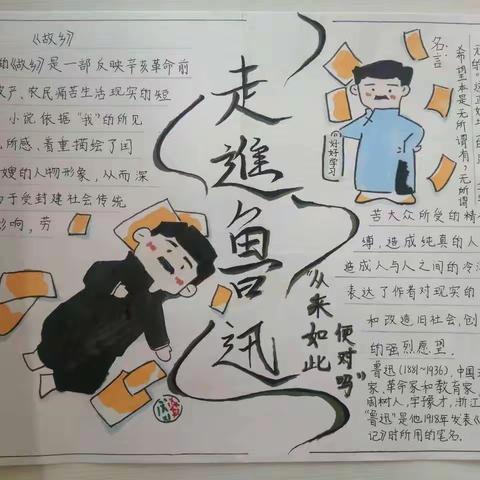 《故乡》
的《故乡》是一部反映辛亥革命前
农民痛苦生活现实的短
小说依据“我”的所见
所感、着重描绘了闰
嫂的人物形象，从而深
于受封建社会传统
影响，劳
走進鲁迅
“从来如此
便对吗”
好好学习
名言：
“希望本是无所谓有，无所谓
苦大众所受的精
缚，造成纯真的人
造成人与人之间的冷
表达了作者对现实的
和改造旧社会，创
的强烈愿望．
鲁迅(1881~1936)，中国
家、革命家和教育家，
周树人，字豫才，浙江
“鲁迅”是他1918年发表《
记》时所用的笔名．